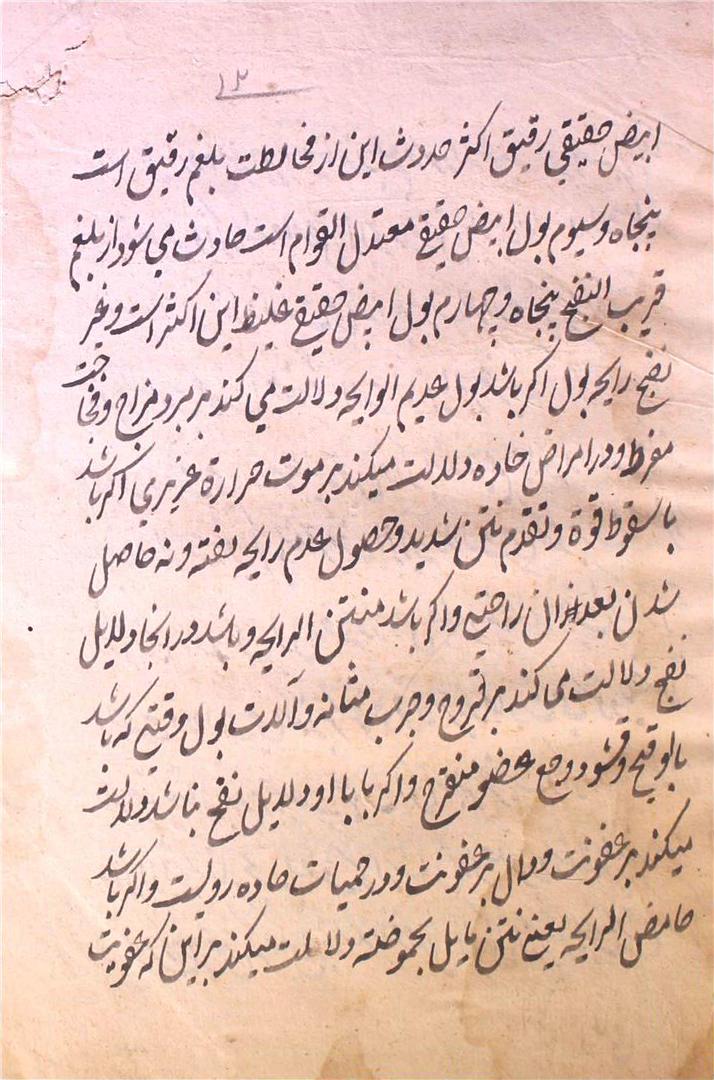 ١٣
ابيض حقيقي رقيق اكثر حدوث اين از مخالطت بلغم رقيق است
پنجاه وسيوم بول ابيض حقيقے معتدل القوام است حادث مي شود از بلغم
قريب النضج پنجاه وچهارم بول ابيض حقيقے غليظ اين اكثر است وغير
نضج رايحه بول اكر باشد بول عديم الوايحه دلالت مي كند بر برد مزاج وفجاجت
مفرط ودر امراض حاده دلالت ميكند بر موت حرارة غريزي اكر باشد
با سقوط قوة وتقدم نتن شديد وحصول عدم رايحه نفته ونه حاصل
شدن بعد ان راحتے واكر باشد منتن الرايحه وباشد در انجا دلايل
نضج دلالت مى كند بر قروح وجرب مثانه وآلات بول وقتے كه باشد
بالو قيح وقشور ووجع عضو متقرح واكر با با او دلايل نضج نباشد دلالت
ميكند بر عفونت ودال بر عفونت ودر حميات حاده رويست واكر باشد
حامض الرايحه يعنے نتن مايل بحموضته دلالت ميكند بر اين كه عفونت